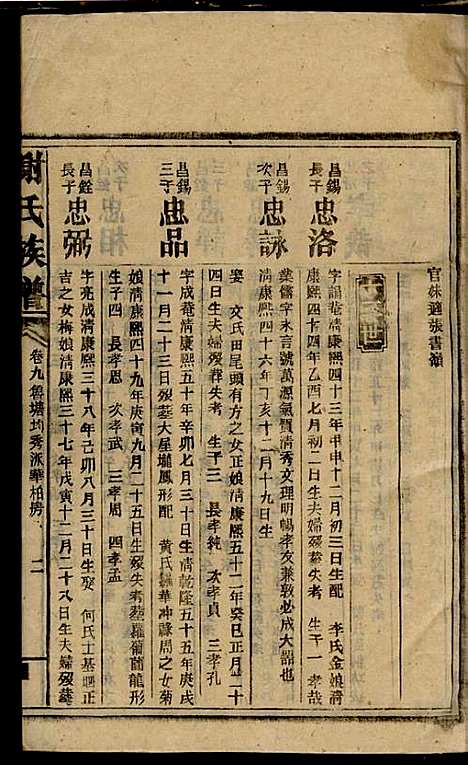 官妹適張書嶺
世
昌錫
長子
忠洛
字韻菴清康熙四十三年甲申十二月初三日生配 李氏金娘清
康熙四十四年乙酉七月初二日生夫婦歿塟失考 生子一 孝哉
昌錫
次子
忠詠
業儒字永言號萬源氣質清秀文理明暢孝友兼敦必成大器也
清康熙四十六年丁亥十二月十九日生
娶 文氏田尾頭有方之女正娘清康熙五十二年癸巳正月二十
四日生夫婦歿葬失考 生子三 長孝純 次孝貞 三孝孔
昌錫
三子
忠品
字成菴清康熙五十年辛卯七月三十日生清乾隆五十五年庚戌
十一月二十三日歿塟大屋壠鳳形配 黄氏羅華冲聲周之女菊
娘清康熙四十九年庚寅九月二十五日生歿失考塟羅葡萄龍形
生子四 長孝恩 次孝武 三孝周 四孝孟
昌銓
長子
忠弼
字亮成清康熙三十八年己卯八月三十日生娶 何氏士基㘭正
吉之女梅娘清康熙三十七年戊寅十二月二十八日生夫婦歿塟
謝氏族譜
卷九魯塘均秀派華柏房
二